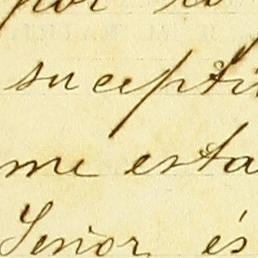 por lo
sucepti
me esta
Señor és